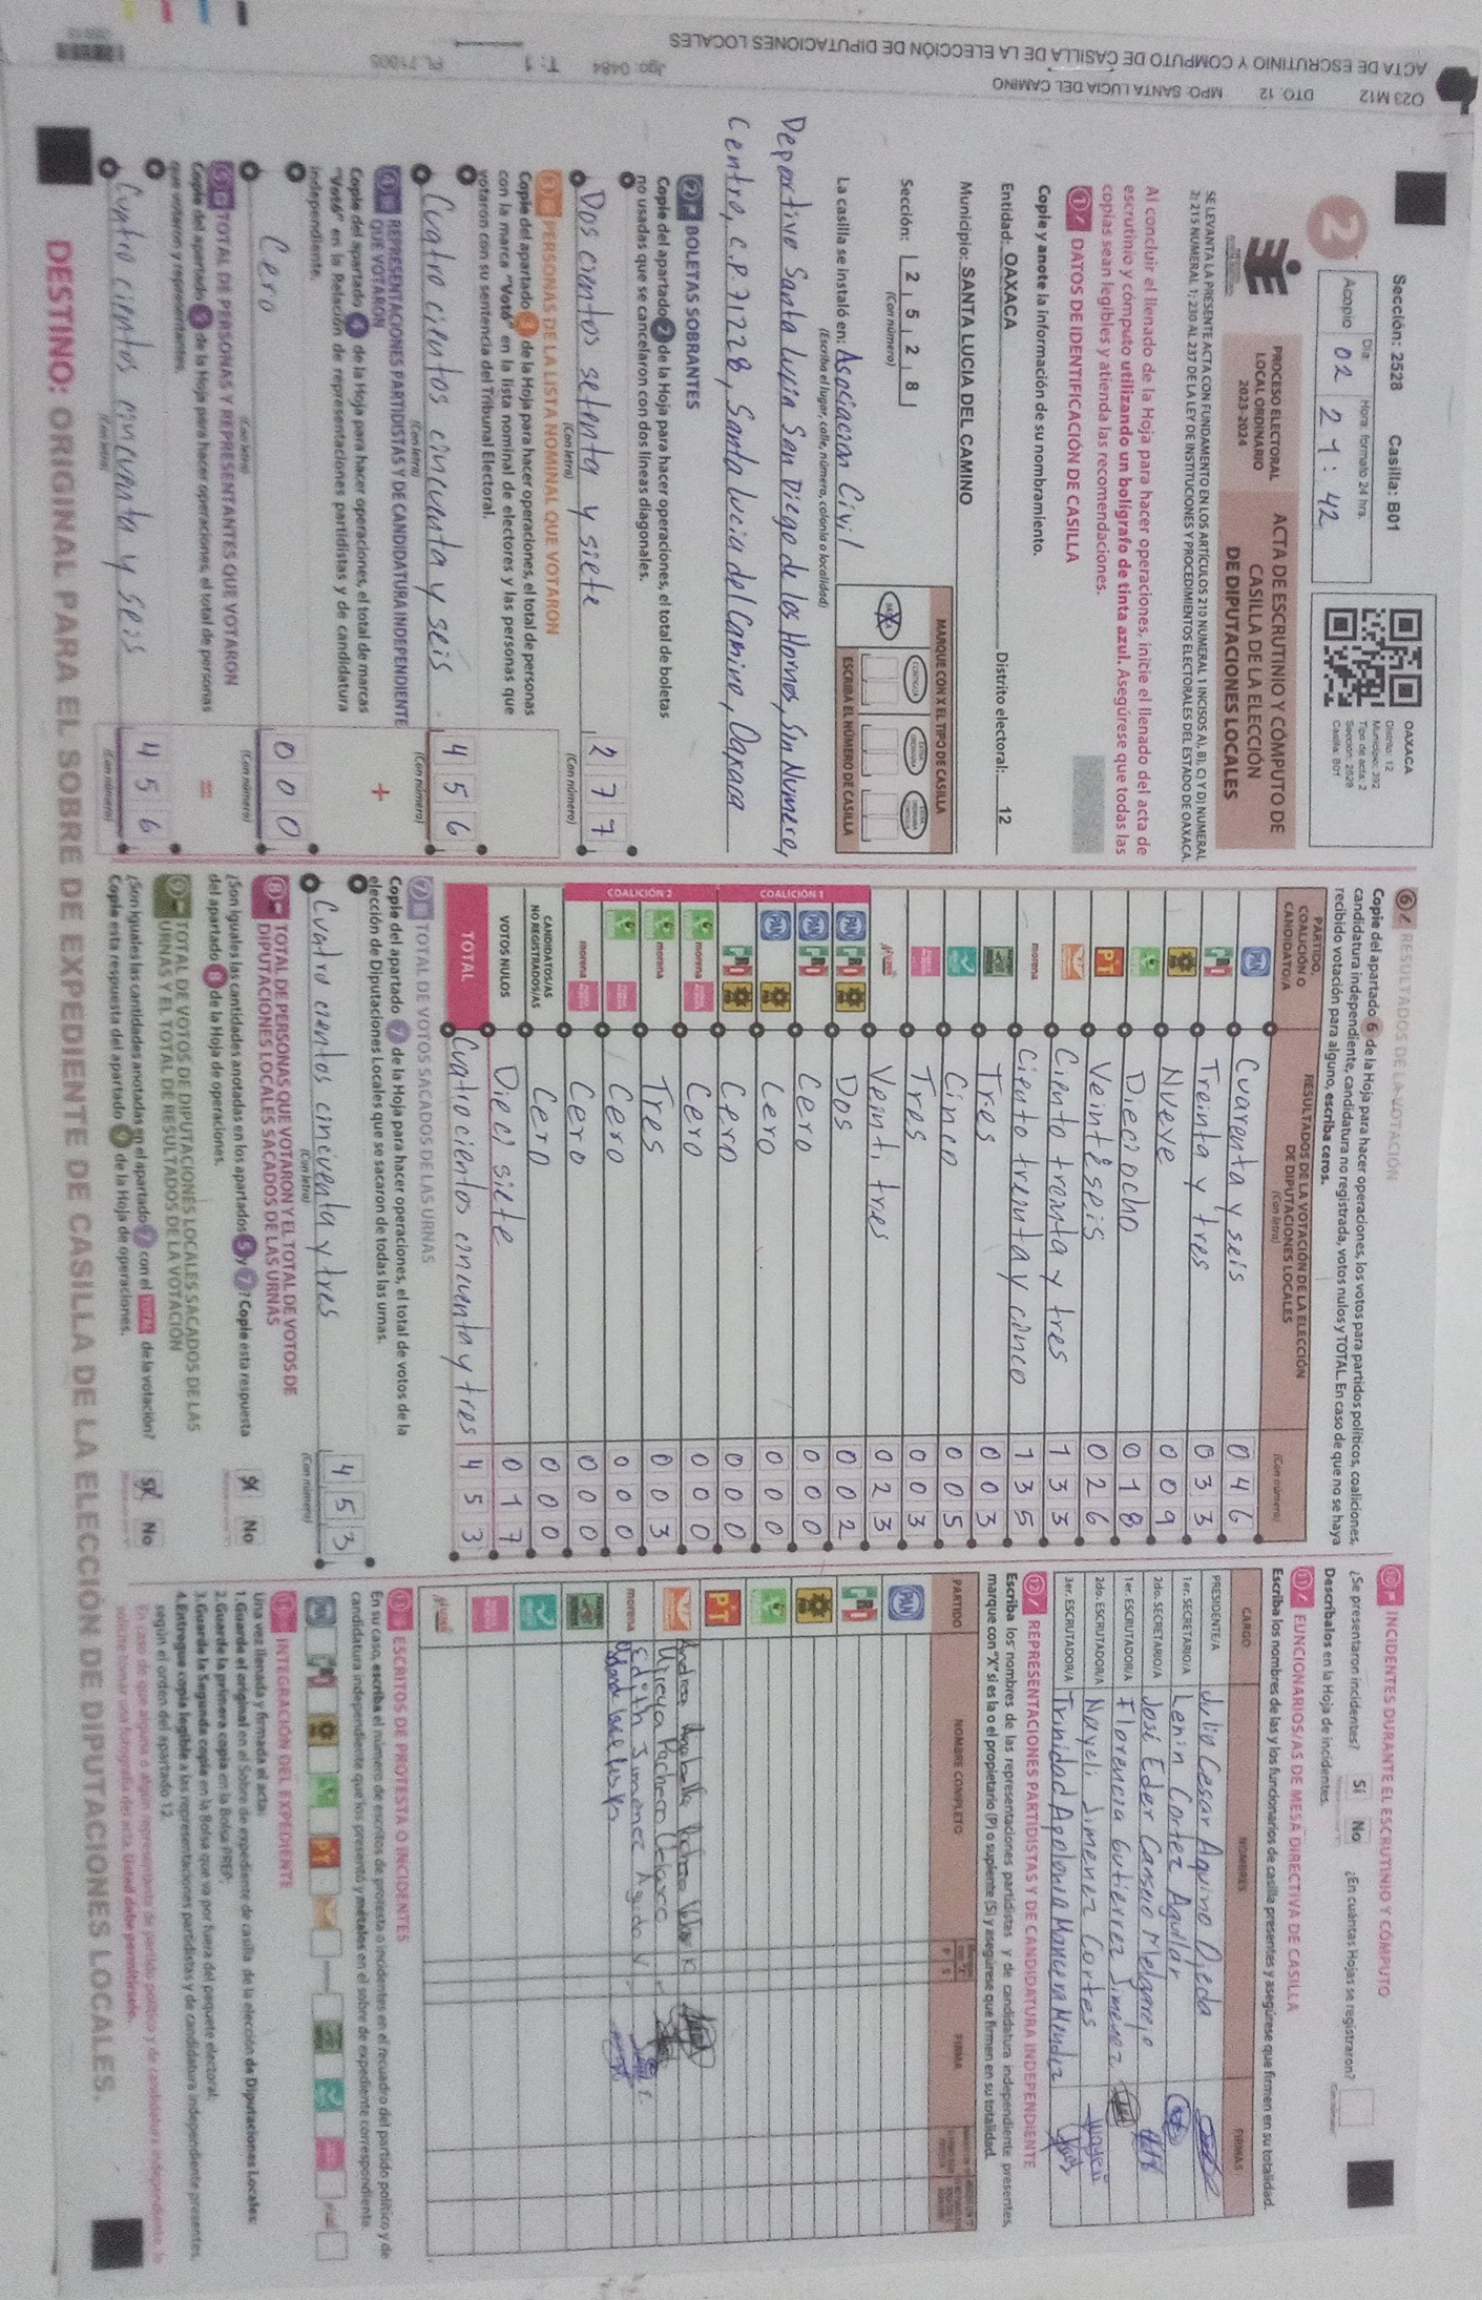 O23 M12 DTO. 12 MPO: SANTA LUCIA DEL CAMINO
ACTA DE ESCRUTINIO Y COMPUTO DE CASILLA DE LA ELECCIÓN DE DIPUTACIONES LOCALES
Jgo: 0484 T: 1
Sección: 2528 Casilla: B01
2
Acopio
Día: Hora: formato 24 hrs.
02 21:42
OAXACA
Distrito: 12
Municipio: 392
Tipo de acta: 2
Sección: 2528
Casilla: B01
PROCESO ELECTORAL
LOCAL ORDINARIO
2023-2024
ACTA DE ESCRUTINIO Y CÓMPUTO DE
CASILLA DE LA ELECCIÓN
DE DIPUTACIONES LOCALES
SE LEVANTA LA PRESENTE ACTA CON FUNDAMENTO EN LOS ARTÍCULOS 210 NUMERAL 1 INCISOS A), B), C) Y D) NUMERAL
2; 215 NUMERAL 1; 230 AL 237 DE LA LEY DE INSTITUCIONES Y PROCEDIMIENTOS ELECTORALES DEL ESTADO DE OAXACA.
Al concluir el llenado de la Hoja para hacer operaciones, inicie el llenado del acta de
escrutinio y cómputo utilizando un bolígrafo de tinta azul. Asegúrese que todas las
copias sean legibles y atienda las recomendaciones.
1 DATOS DE IDENTIFICACIÓN DE CASILLA
Copie y anote la información de su nombramiento.
Entidad: OAXACA Distrito electoral: 12
Municipio: SANTA LUCIA DEL CAMINO
Sección: 2 5 2 8
(Con número)
MARQUE CON X EL TIPO DE CASILLA
X
ESCRIBA EL NÚMERO DE CASILLA
La casilla se instaló en: Asociacion Civil
(Escriba el lugar, calle, número, colonia o localidad)
Deportivo Santa Lucia San Diego de los Hornos, Sin Numero,
Centro, C.P. 71228, Santa Lucia del Camino, Oaxaca
2 BOLETAS SOBRANTES
Copie del apartado 2 de la Hoja para hacer operaciones, el total de boletas
no usadas que se cancelaron con dos líneas diagonales.
Dos cientos setenta y siete 2 7 7
(Con letra) (Con número)
3 PERSONAS DE LA LISTA NOMINAL QUE VOTARON
Copie del apartado 3 de la Hoja para hacer operaciones, el total de personas
con la marca "Votó" en la lista nominal de electores y las personas que
votaron con su sentencia del Tribunal Electoral.
Cuatro cientos cincuenta y seis 4 5 6
(Con letra) (Con número)
4 REPRESENTACIONES PARTIDISTAS Y DE CANDIDATURA INDEPENDIENTE
QUE VOTARON
+
Copie del apartado 4 de la Hoja para hacer operaciones, el total de marcas
"Votó" en la Relación de representaciones partidistas y de candidatura
independiente.
Cero 0 0 0
(Con letra) (Con número)
5 TOTAL DE PERSONAS Y REPRESENTANTES QUE VOTARON
=
Copie del apartado 5 de la Hoja para hacer operaciones, el total de personas
que votaron y representantes.
Cuatro cientos cincuenta y seis 4 5 6
(Con letra) (Con número)
6 RESULTADOS DE LA VOTACIÓN
Copie del apartado 6 de la Hoja para hacer operaciones, los votos para partidos políticos, coaliciones,
candidatura independiente, candidatura no registrada, votos nulos y TOTAL. En caso de que no se haya
recibido votación para alguno, escriba ceros.
PARTIDO,
COALICIÓN O
CANDIDATO/A
RESULTADOS DE LA VOTACIÓN DE LA ELECCIÓN
DE DIPUTACIONES LOCALES
(Con letra) (Con número)
PAN Cuarenta y seis 0 4 6
PRI Treinta y tres 0 3 3
PRD Nueve 0 0 9
Dieciocho 0 1 8
PT Veintiseis 0 2 6
Ciento treinta y tres 1 3 3
morena Ciento treinta y cinco 1 3 5
Tres 0 0 3
Cinco 0 0 5
Tres 0 0 3
Veintitres 0 2 3
COALICIÓN 1
PAN PRI PRD Dos 0 0 2
PAN PRI Cero 0 0 0
PAN PRD Cero 0 0 0
PRI PRD Cero 0 0 0
COALICIÓN 2
morena Cero 0 0 0
morena Tres 0 0 3
Cero 0 0 0
morena Cero 0 0 0
CANDIDATOS/AS
NO REGISTRADOS/AS Cero 0 0 0
VOTOS NULOS Diecisiete 0 1 7
TOTAL Cuatro cientos cincuenta y tres 4 5 3
7 TOTAL DE VOTOS SACADOS DE LAS URNAS
Copie del apartado 7 de la Hoja para hacer operaciones, el total de votos de la
elección de Diputaciones Locales que se sacaron de todas las urnas.
Cuatro cientos cincuenta y tres 4 5 3
(Con letra) (Con número)
8 TOTAL DE PERSONAS QUE VOTARON Y EL TOTAL DE VOTOS DE
DIPUTACIONES LOCALES SACADOS DE LAS URNAS
¿Son iguales las cantidades anotadas en los apartados 5 y 7? Copie esta respuesta
del apartado 8 de la Hoja de operaciones.
Sí No
9 TOTAL DE VOTOS DE DIPUTACIONES LOCALES SACADOS DE LAS
URNAS Y EL TOTAL DE RESULTADOS DE LA VOTACIÓN
¿Son iguales las cantidades anotadas en el apartado 7 con el TOTAL de la votación?
Copie esta respuesta del apartado 9 de la Hoja de operaciones.
Sí No
10 INCIDENTES DURANTE EL ESCRUTINIO Y CÓMPUTO
¿Se presentaron incidentes? Sí No ¿En cuántas Hojas se registraron?
Descríbalos en la Hoja de incidentes.
11 FUNCIONARIOS/AS DE MESA DIRECTIVA DE CASILLA
Escriba los nombres de las y los funcionarios de casilla presentes y asegúrese que firmen en su totalidad.
CARGO NOMBRES FIRMAS
PRESIDENTE/A Julio Cesar Aquino Ojeda
1er. SECRETARIO/A Lenin Cortez Aguilar
2do. SECRETARIO/A José Eder Canseco Melgarejo
1er. ESCRUTADOR/A Florencia Gutierrez Jimenez
2do. ESCRUTADOR/A Nayeli Jimenez Cortes
3er. ESCRUTADOR/A Trinidad Apolonia Mancera Mendez
12 REPRESENTACIONES PARTIDISTAS Y DE CANDIDATURA INDEPENDIENTE
Escriba los nombres de las representaciones partidistas y de candidatura independiente presentes,
marque con "X" si es la o el propietario (P) o suplente (S) y asegúrese que firmen en su totalidad.
PARTIDO NOMBRE COMPLETO P S FIRMA
PAN
PRI
PRD
PT
Mireya Pacheco
morena Edith Jimenez
13 ESCRITOS DE PROTESTA O INCIDENTES
En su caso, escriba el número de escritos de protesta o incidentes en el recuadro del partido político y de
candidatura independiente que los presentó y métalos en el sobre de expediente correspondiente.
PT
14 INTEGRACIÓN DEL EXPEDIENTE
Una vez llenada y firmada el acta:
1. Guarde el original en el Sobre de expediente de casilla de la elección de Diputaciones Locales;
2. Guarde la primera copia en la Bolsa PREP;
3. Guarde la Segunda copia en la Bolsa que va por fuera del paquete electoral;
4. Entregue copia legible a las representaciones partidistas y de candidatura independiente presentes,
según el orden del apartado 12.
DESTINO: ORIGINAL PARA EL SOBRE DE EXPEDIENTE DE CASILLA DE LA ELECCIÓN DE DIPUTACIONES LOCALES.